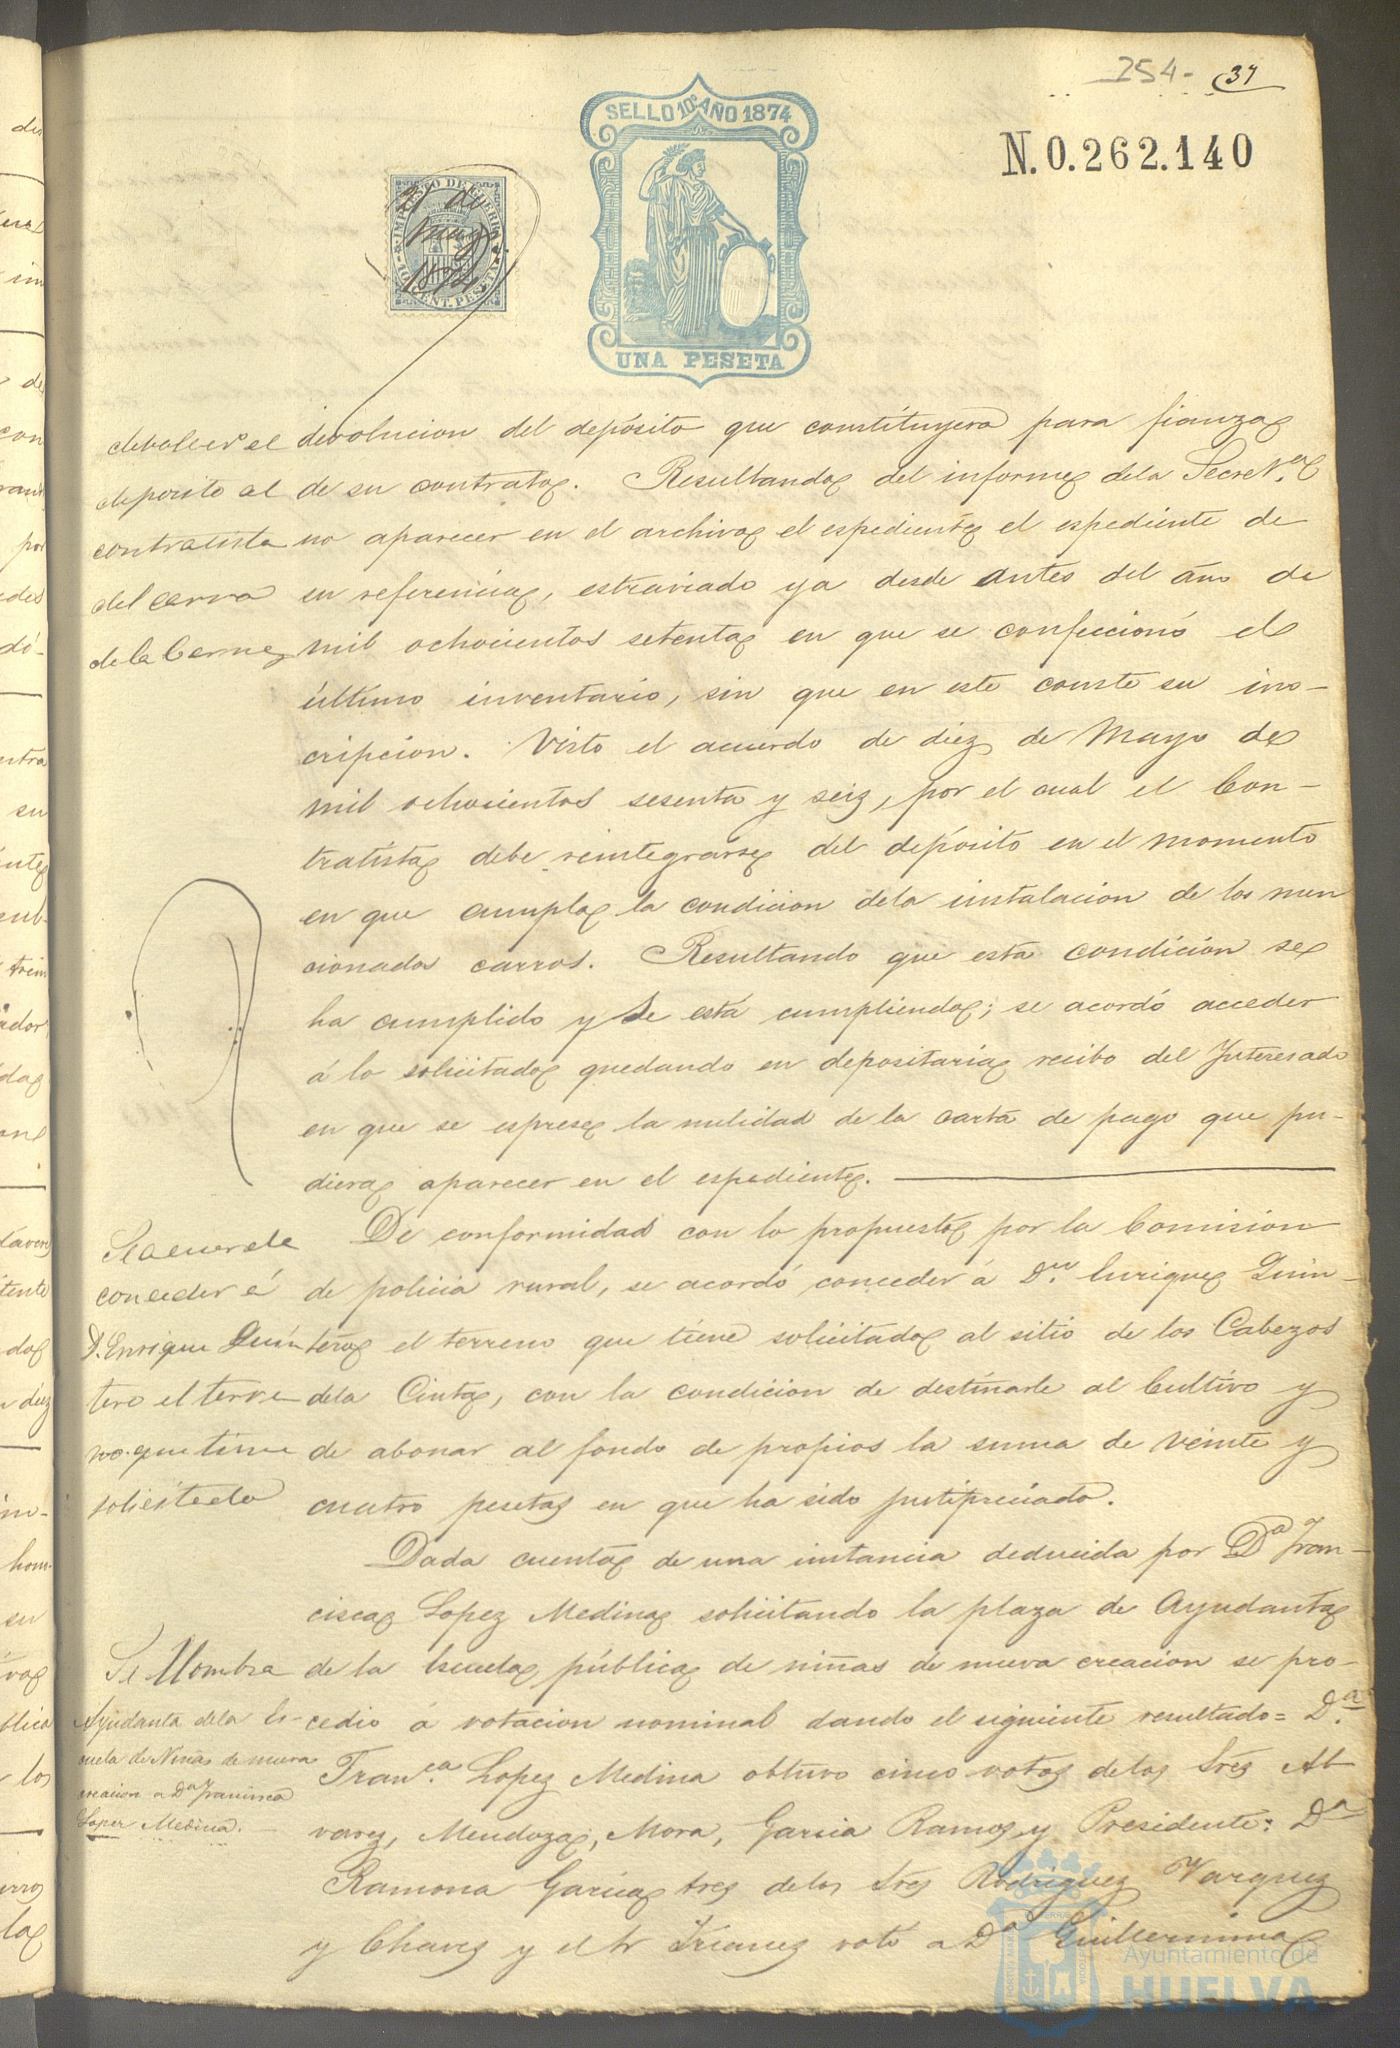 254- 37
SELLO 10º AÑO 1874
N.0.262.140
IMPUESTO DE GUERRA
21 de
Mayo
1874
10 CENT. PESETA
UNA PESETA
devolver el
deposito al
contratista
del carro
de la Carne
devolucion del depósito que constituyera para fianza
de su contrato. Resultando del informe dela Secret.ª
no aparecer en el archivo el espediente el espediente de
en referencia, estraviado ya desde antes del año de
mil ochocientos setenta en que se confeccionó el
último inventario, sin que en este conste su ins-
cripcion. Visto el acuerdo de diez de Mayo de
mil ochocientos sesenta y seiz, por el cual el Con-
tratista debe reintegrarse del depósito en el momento
en que cumpla la condicion dela instalacion de los men
cionados carros. Resultando que esta condicion se
ha cumplido y se está cumpliendo; se acordó acceder
á lo solicitado quedando en depositaria recibo del Interesado
en que se esprese la nulidad de la carta de pago que pu-
diera aparecer en el espediente.
Se acuerda
conceder á
D. Enrique Quin
tero el terre
no que tiene
solicitado
De conformidad con lo propuesto por la Comision
de policia rural, se acordó conceder á D.n Enrique Quin-
tero el terreno que tiene solicitado al sitio de los Cabezos
dela Cinta, con la condicion de destinarle al Cultivo y
de abonar al fondo de propios la suma de veinte y
cuatro pesetas en que ha sido justipreciado.
Se Nombra
Ayudanta dela Es-
cuela de Niñas de nueva
creacion a Dª Francisca
Lopez Medina.
Dada cuenta de una instancia deducida por Dª Fran-
cisca Lopez Medina solicitando la plaza de Ayudanta
de la Escuela pública de niñas de nueva creacion se pro-
cedio á votacion nominal dando el siguiente resultado= D.ª
Fran.ca Lopez Medina obtuvo cinco votos delos Sres Al
varez, Mendoza, Mora, Garcia Ramos y Presidente: Dª
Ramona Garcia tres delos Sres Rodriguez Vazquez
y Chavez y el Sr Trianes votó a Dª Guillermina
Ayuntamiento de
HUELVA